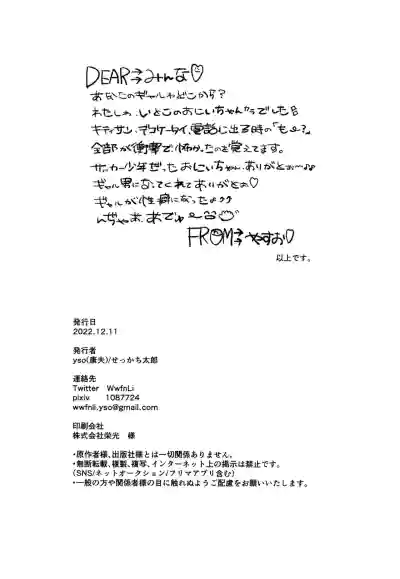 DEAR⇉みんな♡
あなたのギャルわどこから?
わたしわ、いとこのおにいちゃんからでした
キティサン、デコケータイ、電話に出る時の「もしー?」
全部が衝撃で、怖かったのを覚えてます。
サッカー少年だったおにいちゃん、ありがとぉ〜♪
ギャル男になってくれてありがとぉ♡
ギャルが性癖になったよ
んぢゃぁ、あでゅ〜
FROM⇉やすお♡
以上です。
発行日
2022.12.11
発行者
yso(康夫)/せっかち太郎
連絡先
Twitter WwfnLi
pixiv 1087724
wwfnli.yso@gmail.com
印刷会社
株式会社栄光 様
・原作者様、出版社様とは一切関係ありません。
・無断転載、複製、複写、インターネット上の掲示は禁止です。
(SNS/ネットオークション/フリマアプリ含む)
・一般の方や関係者様の目に触れぬようご配慮をお願いいたします。